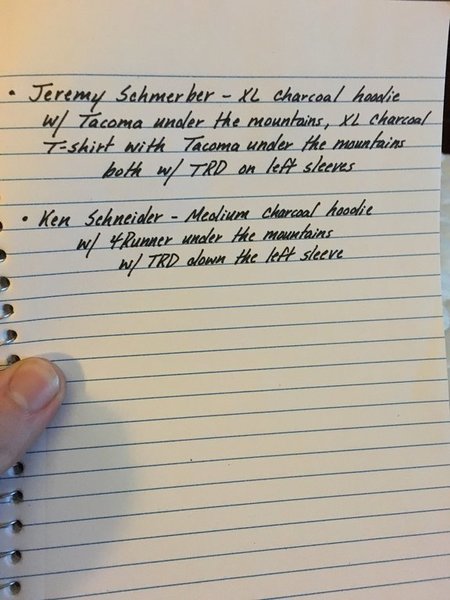 • Jeremy Schmerber - XL charcoal hoodie
w/ Tacoma under the mountains, XL charcoal
T-shirt with Tacoma under the mountains
both w/ TRD on left sleeves
• Ken Schneider - Medium charcoal hoodie
w/ 4Runner under the mountains
w/ TRD down the left sleeve